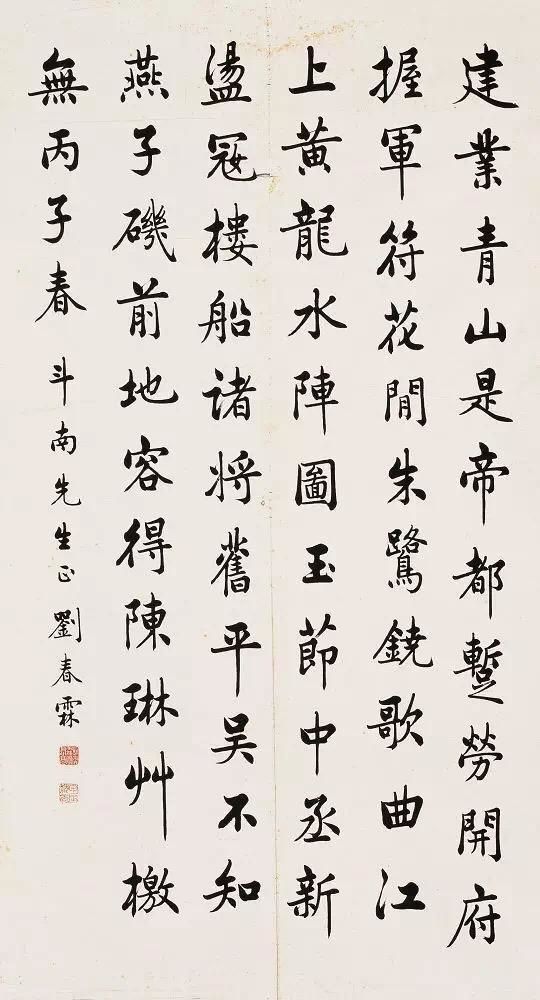 建業青山是帝都蹔勞開府
握軍符花閒朱鷺鐃歌曲江
上黃龍水陣圖玉節中丞新
盪寇樓船諸將舊平吳不知
燕子磯前地容得陳琳艸檄
無丙子春 斗南先生正 劉春霖